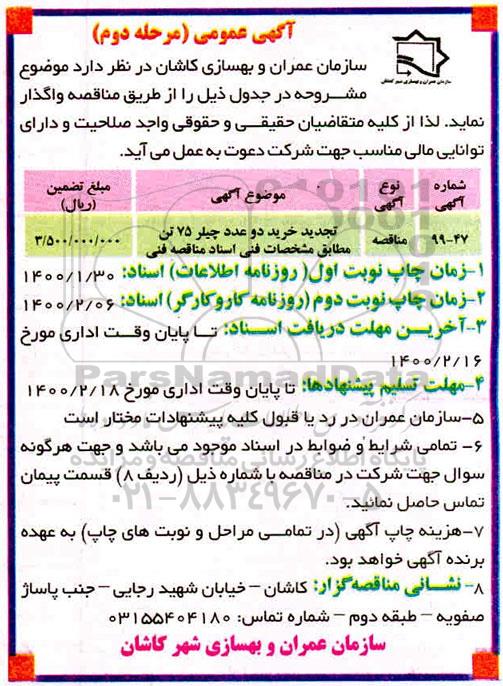 آگهی عمومی (مرحله دوم)
سازمان عمران و بهسازی شهر کاشان
سازمان عمران و بهسازی کاشان در نظر دارد موضوع
مشروحه در جدول ذیل را از طریق مناقصه واگذار
نماید. لذا از کلیه متقاضیان حقیقی و حقوقی واجد صلاحیت و دارای
توانایی مالی مناسب جهت شرکت دعوت به عمل می آید.
شماره آگهی | نوع آگهی | موضوع آگهی | مبلغ تضمین (ریال)
۹۹-۴۷ | مناقصه | تجدید خرید دو عدد چیلر ۷۵ تن مطابق مشخصات فنی اسناد مناقصه فنی | ۳/۵۰۰/۰۰۰/۰۰۰
۱-زمان چاپ نوبت اول( روزنامه اطلاعات) اسناد: ۱۴۰۰/۱/۳۰
۲-زمان چاپ نوبت دوم (روزنامه کاروکارگر) اسناد: ۱۴۰۰/۲/۰۶
۳-آخرین مهلت دریافت اسناد: تا پایان وقت اداری مورخ
۱۴۰۰/۲/۱۶
۴-مهلت تسلیم پیشنهادها: تا پایان وقت اداری مورخ ۱۴۰۰/۲/۱۸
۵-سازمان عمران در رد یا قبول کلیه پیشنهادات مختار است
۶- تمامی شرایط و ضوابط در اسناد موجود می باشد و جهت هرگونه
سوال جهت شرکت در مناقصه با شماره ذیل (ردیف ۸) قسمت پیمان
تماس حاصل نمائید.
۷-هزینه چاپ آگهی (در تمامی مراحل و نوبت های چاپ) به عهده
برنده آگهی خواهد بود.
۸- نشانی مناقصه‌گزار: کاشان – خیابان شهید رجایی – جنب پاساژ
صفویه – طبقه دوم – شماره تماس: ۰۳۱۵۵۴۰۴۱۸۰
سازمان عمران و بهسازی شهر کاشان
ParsNamadData
پایگاه اطلاع رسانی مناقصه و مزایده
۰۲۱-۸۸۳۴۹۶۷۰-۵